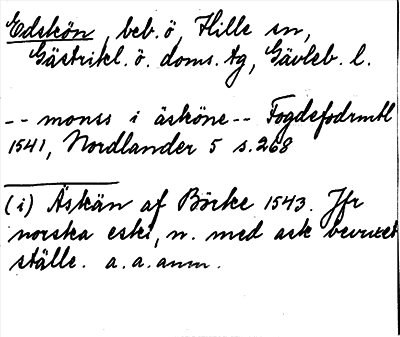 Edskön, beb. ö, Hille sn,
Gästrikl. ö. doms. tg, Gävleb. l.
-- monss i äsköne -- Fogdefodrmtl
1541, Nordlander 5 s. 268
(i) Äskän af Börke 1543. Jfr
norska eski, n. med ask bevuxet
ställe. a.a. anm.